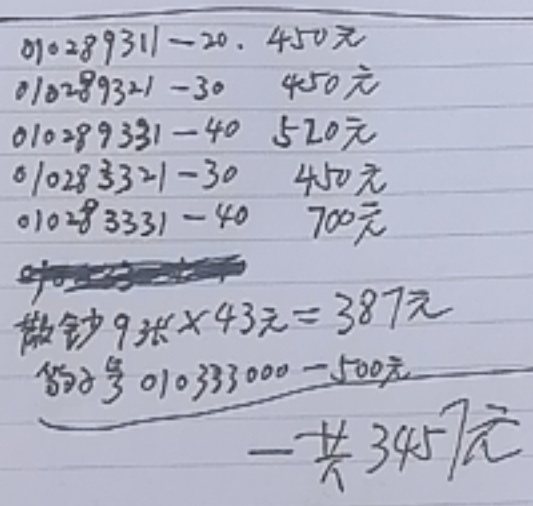 010289311-20. 450元
010289321-30 450元
010289331-40 520元
010283321-30 450元
010283331-40 700元
散钞9张×43元=387元
豹子号010333000-500元
一共3457元